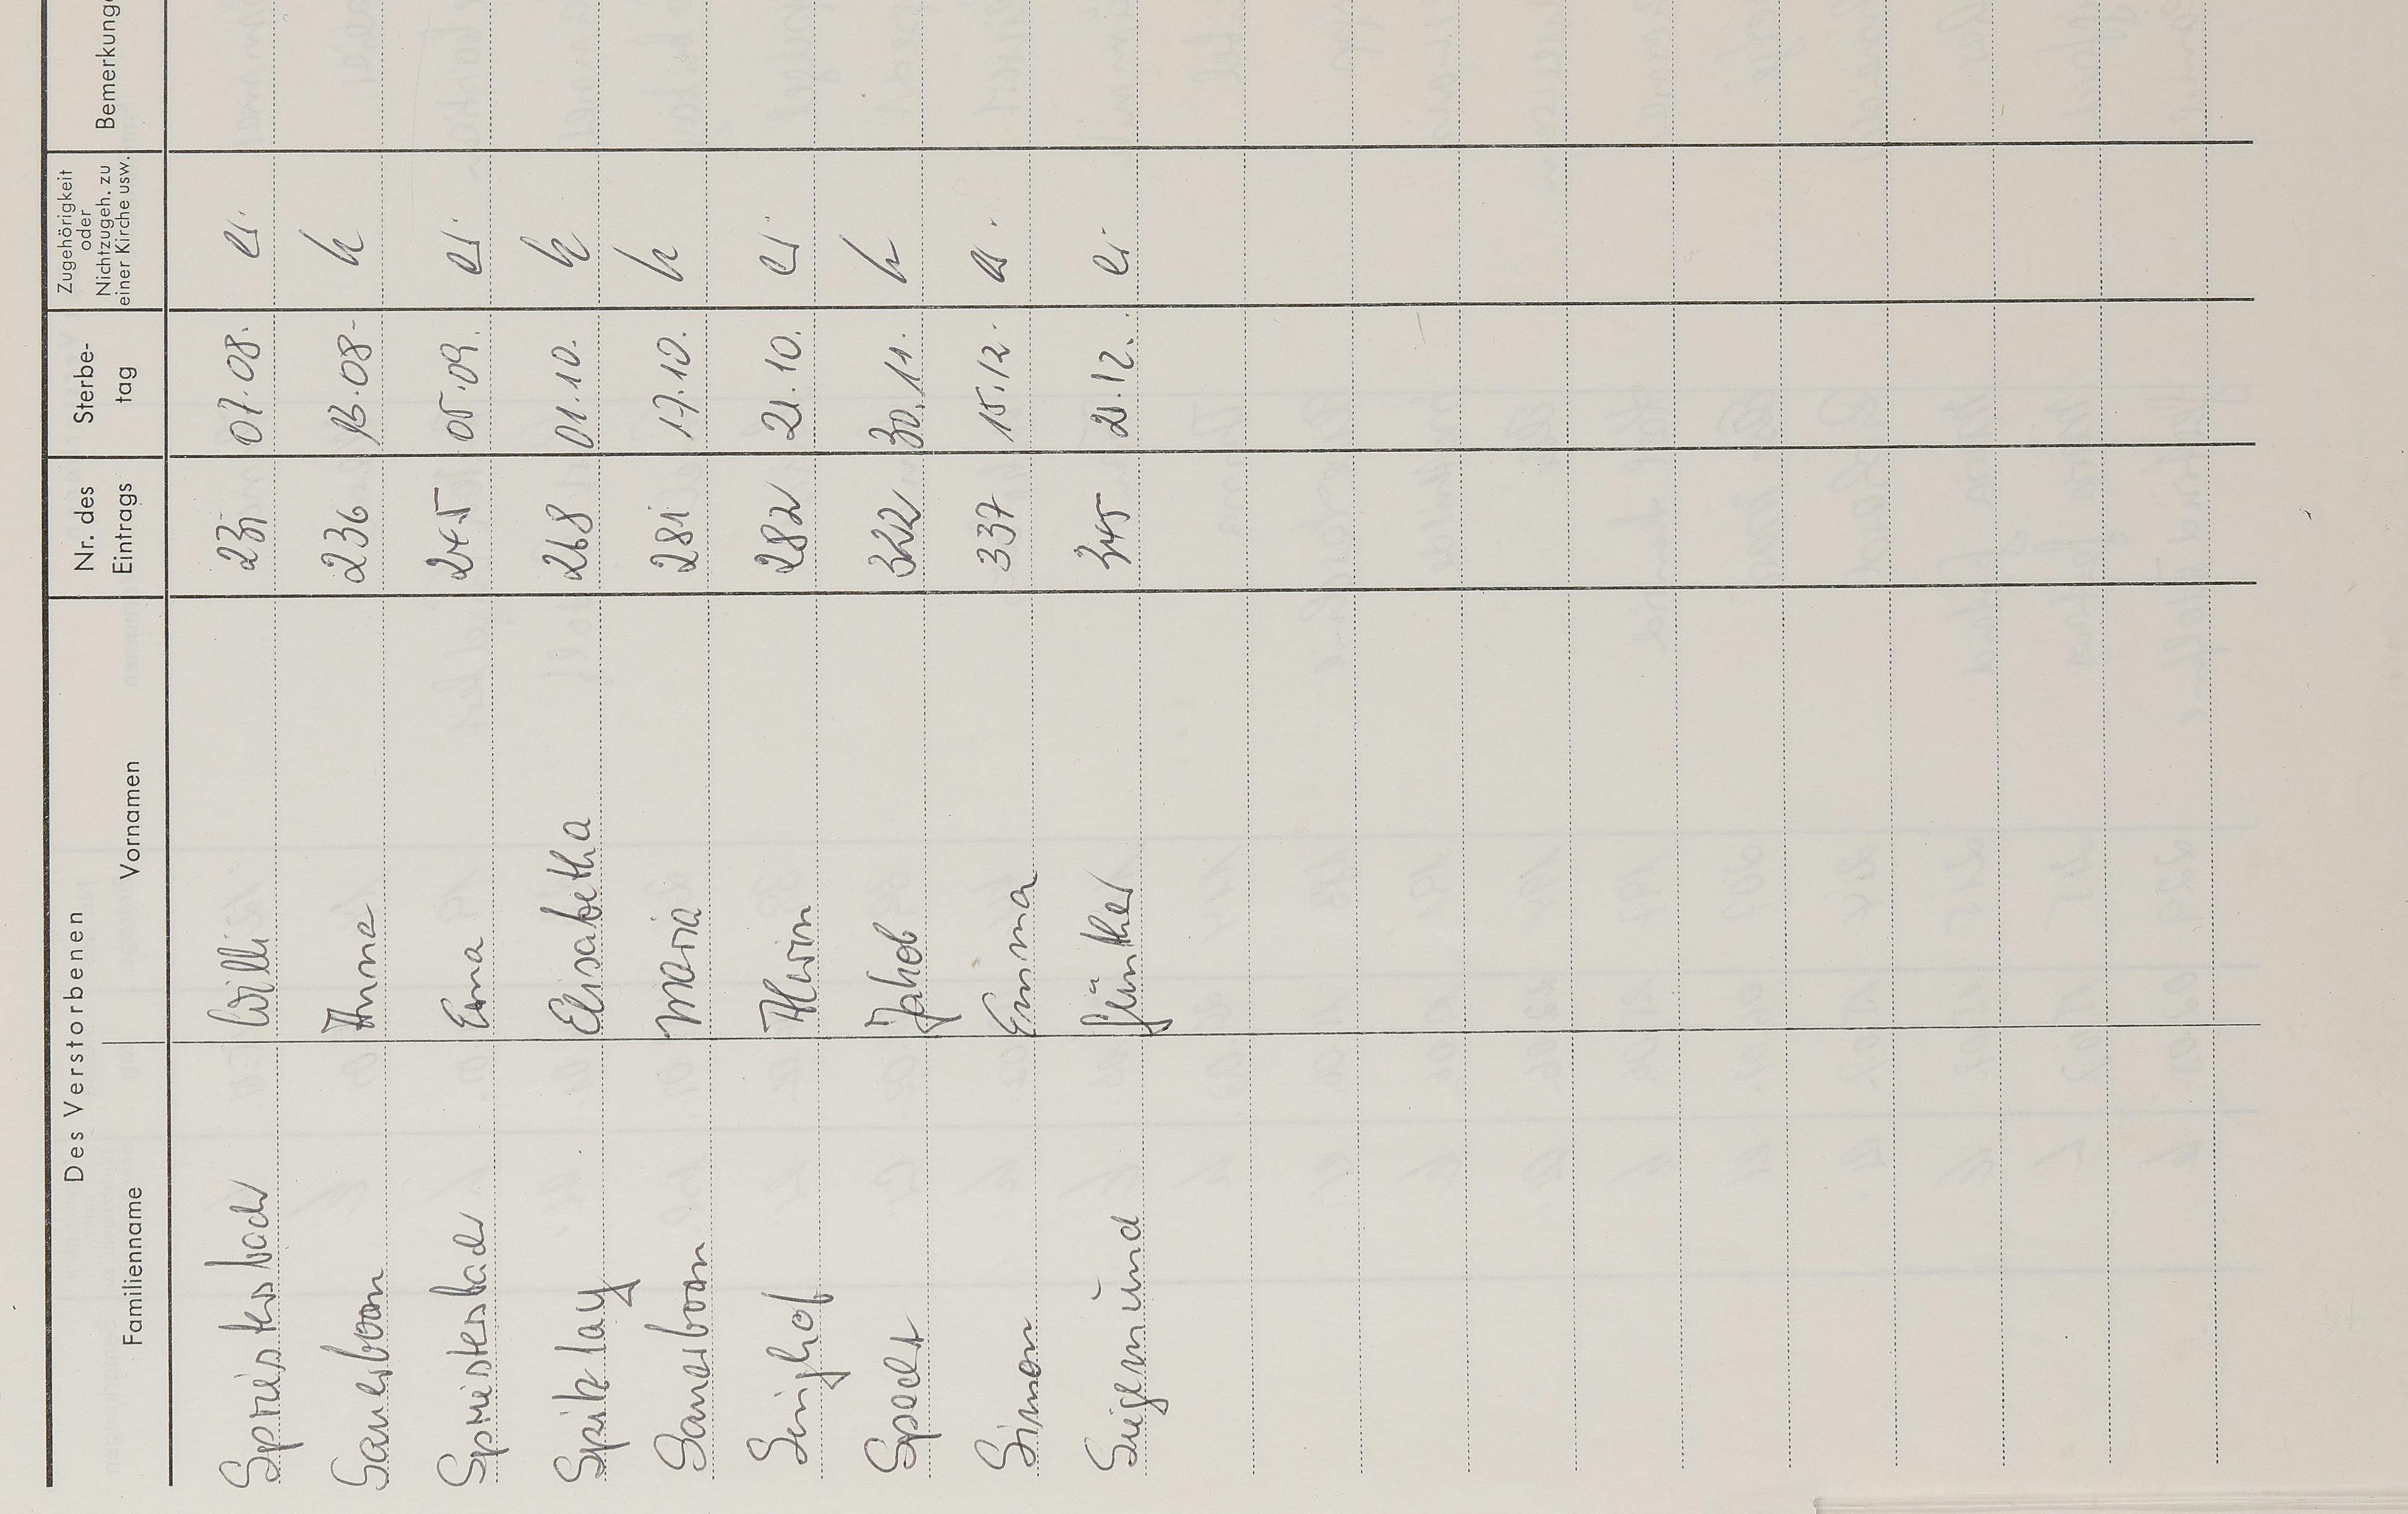 Des Verstorbenen
Familienname Vornamen Nr. des Eintrags Sterbe-tag Zugehörigkeit oder Nichtzugeh. zu einer Kirche usw. Bemerkunge
Spriestersbach Willi 07.08. ev.
Sauerborn Anna 236 13.08. k
Spriestersbach Erna 245 05.09. ev.
Spitzlay Elisabetha 268 01.10. k
Sauerborn Maria 281 17.10. k
Singhof Alwin 282 21.10. ev.
Specht Jakob 322 30.11. k
Simon Emma 337 15.12. ev.
Siegemund Günther 345 21.12. ev.